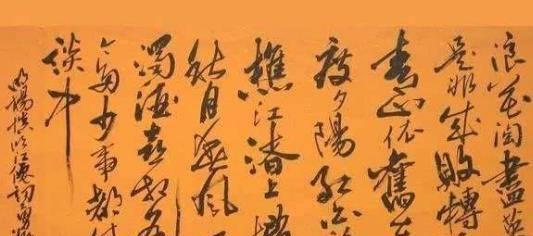 浪花淘盡英
是非成敗轉
青山依舊在
度夕陽紅白
樵江渚上慣
秋月春風
濁酒喜相逢
今多少事都付
談中
明楊慎臨江仙詞